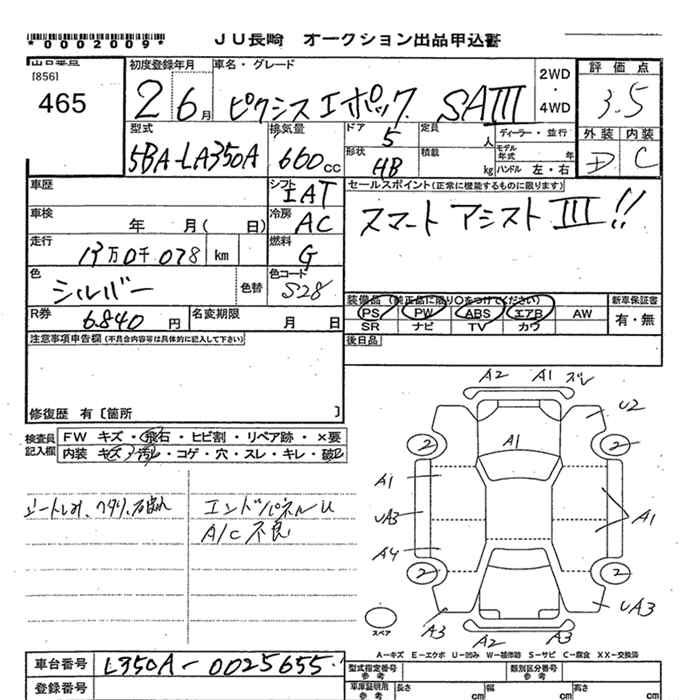 *0002009*
JU長崎 オークション出品申込書
[856]
465
初度登録年月
2 6月
車名・グレード
ピクシス エポック SAIII
2WD
・
4WD
評価点
3.5
型式
5BA-LA350A
排気量
660 cc
ドア
5
定員
人
ディーラー・並行
形状
HB
積載
kg
モデル年式 年
ハンドル 左・右
外装 内装
D C
車歴
シフト
IAT
セールスポイント(正常に機能するものに限ります)
スマート アシスト III!!
車検
年 月( 日)
冷房
AC
走行
13万0千078 km
燃料
G
色
シルバー
色替
色コード
S28
R券
6.840 円
名変期限
月 日
装備品(純正品に限り○をつけてください)
PS PW ABS エアB AW
SR ナビ TV カワ
新車保証書
有・無
注意事項申告欄(不具合内容等は具体的に記入して下さい)
後日品
修復歴 有〔箇所 〕
検査員記入欄
FW キズ・飛石・ヒビ割・リペア跡・×要
内装 キズ・汚レ・コゲ・穴・スレ・キレ・破レ
エンドパネルU
A/C不良
A2 A1 ズレ
U2
2 A1 2
A1
UA3 A1
A4
2 2
UA3
A3 A2 A2 A3
スペア
A-キズ E-エクボ U-凹み W-補修跡 S-サビ C-腐食 XX-交換済
車台番号
LA350A-0025655
登録番号
型式指定番号 参考
類別区分番号 参考
車庫証明用 参考
長さ cm
幅 cm
高さ cm